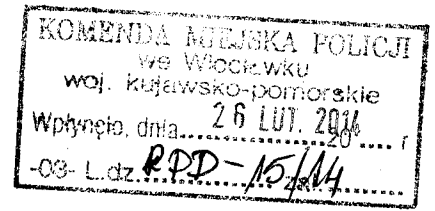 KOMENDA MIEJSKA POLICJI
we Włocławku
woj. kujawsko-pomorskie
Wpłynęło, dnia 26 LUT. 2014 r
-03- L.dz. RPD-15/14